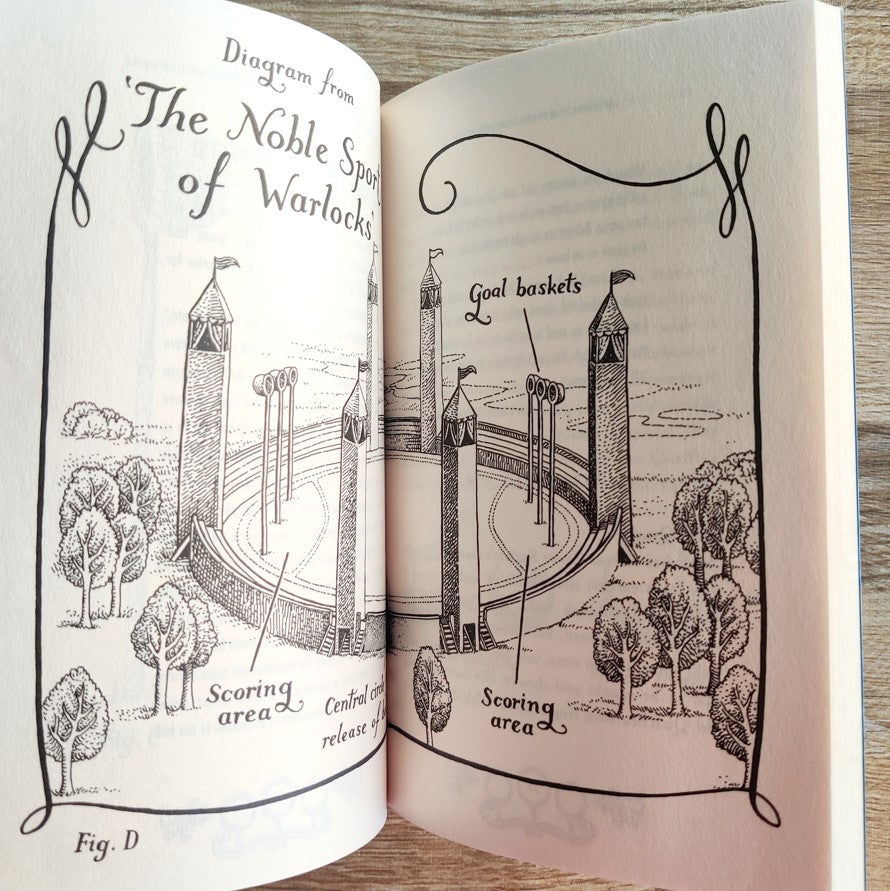 Diagram from
'The Noble Sport
of Warlocks'
Goal baskets
Scoring
area
Central circle
release of
Scoring
area
Fig. D